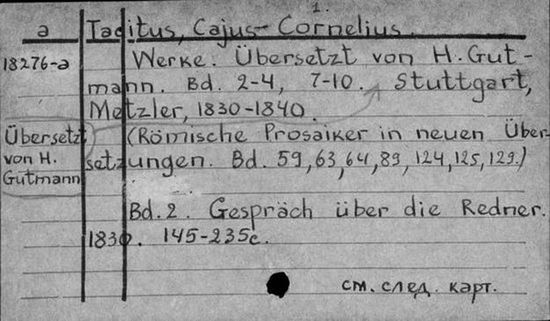 1.
a Tacitus, Cajus Cornelius.
18276-a Werke. Übersetzt von H. Gut-
mann. Bd. 2-4, 7-10. Stuttgart,
Metzler, 1830-1840.
Übersetzt (Römische Prosaiker in neuen Über-
von H. setzungen. Bd. 59, 63, 64, 89, 124, 125, 129.)
Gutmann
Bd. 2. Gespräch über die Redner.
1830. 145-235c.
см. след. карт.